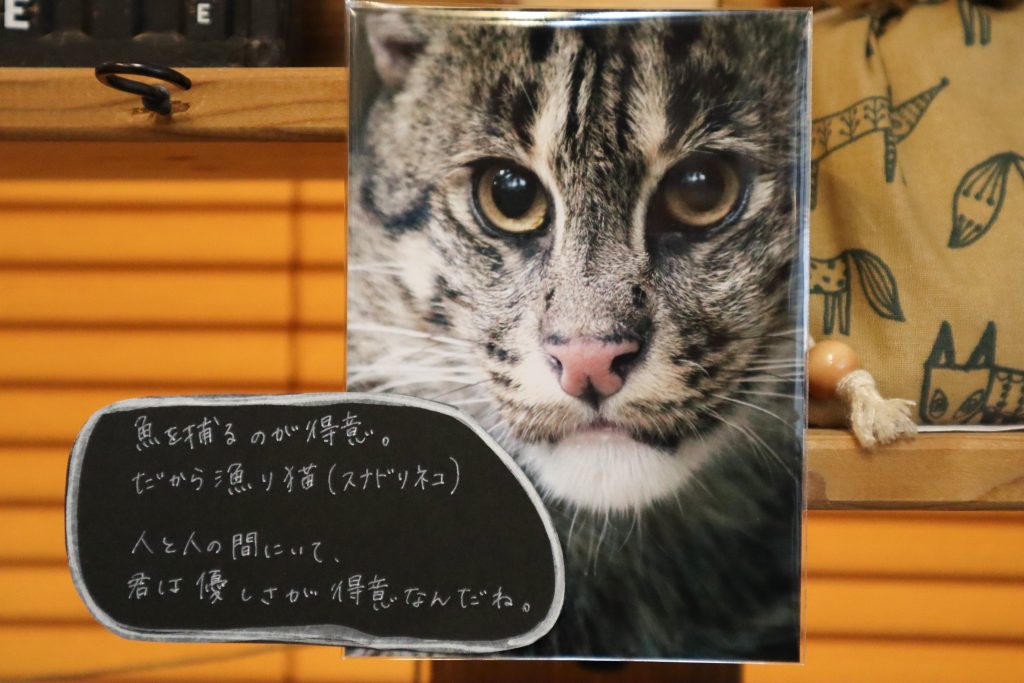 E
E
魚を捕るのが得意。
だから漁り猫(スナドリネコ)
人と人の間にいて、
君は優しさが得意なんだね。